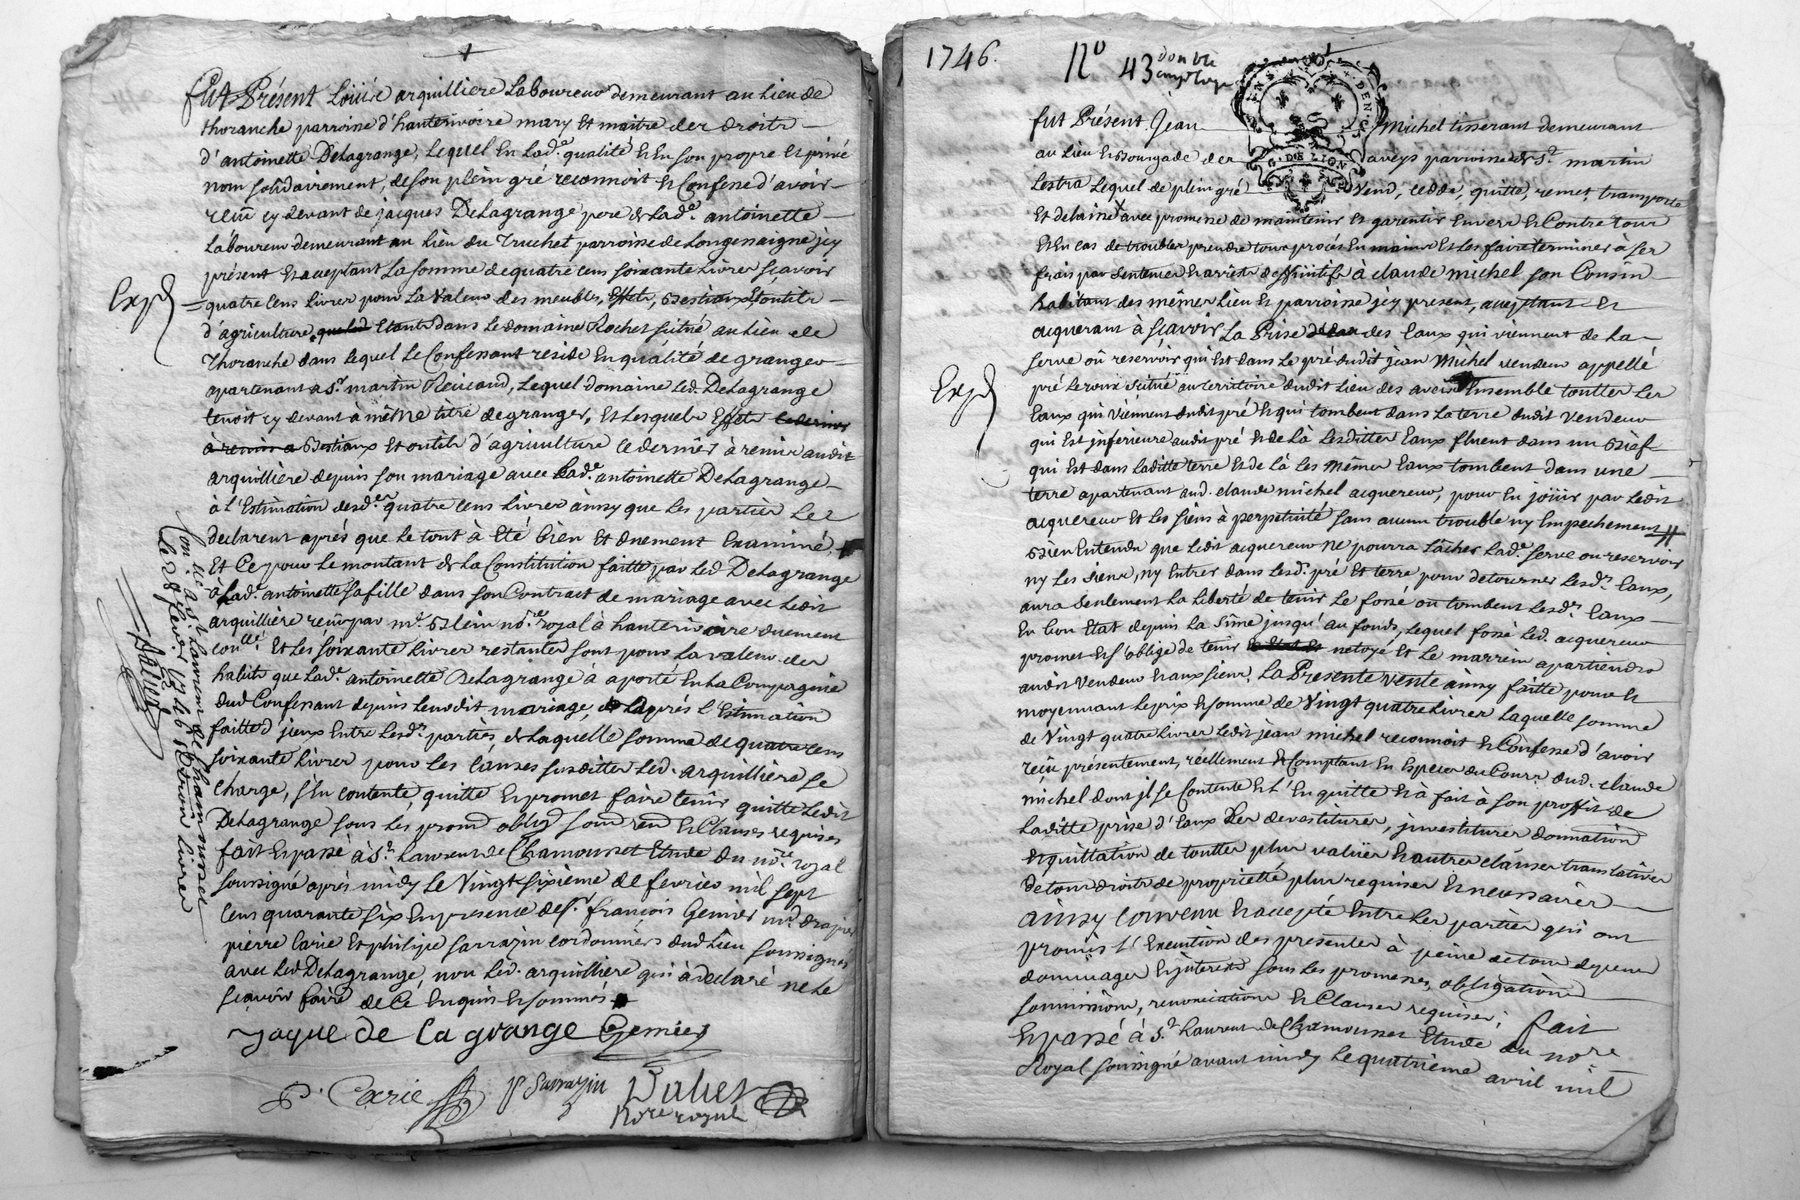 fut Présent Loüis arquilliere Laboureur demeurant au Lieu de
thoranche parroisse d'hauterivoire mary Et maitre des droits
d'antoinette Delagrange, Lequel En Lad.e qualité Et En son propre Et privé
nom solidairement, de son plein gré reconnoit Et Confesse d'avoir
reçu cy devant de jacques Delagrange pere de Lad.e antoinette
Laboureur demeurant au Lieu du Truchet parroisse de Longessaigne jcy
présent Et acceptant La somme de quatre cens soixante Livres sçavoir
Exp.d
quatre cens Livres pour La Valeur des meubles, Effets, Bestiaux, Et outils
d'agriculture Etants dans Le domaine Rochet situé au Lieu de
Thoranche dans Lequel Le Confessant reside En qualité de granger
apartenant a S.r martin Reicaud, Lequel domaine Led. DeLagrange
tenoit cy devant à même titre de granger, Et Lesquels Effets ce dernier
à remis a Bestiaux Et outils d'agriculture ce dernier à remis audit
arquilliere depuis son mariage avec Lad.e antoinette DeLagrange
à L'Estimation desd.es quatre cens Livres ainsy que Les parties Le
declarent aprés que Le tout à Eté bien Et duement Examiné,
Et Ce pour Le montant de La Constitution faitte par Led DeLagrange
à Lad.e antoinette sa fille dans son Contract de mariage avec Ledit
arquilliere reçu par m.e no.re royal à hauterivoire duement
con.llé Et Les soixante Livres restantes sont pour La valeur des
habits que Lad.e antoinette DeLagrange à aporté En La Compagnie
dud Confessant depuis Leurdit mariage, d'aprés L'Estimation
faitte d'jceux Entre Lesd. parties, de Laquelle somme de quatre cens
soixante Livres pour Les Causes susdittes Led. arquilliere se
Charge, s'En contente, quitte Et promet faire tenir quitte Ledit
DeLagrange sous Les prom.s oblig.s soum.s ren.d Et Clauses requises
fait Et passé à S.t Laurent de Chamousset Etude du no.re royal
soussigné aprés midy Le Vingt sixieme de fevrier mil sept
Cens quarante six En presence de S.r françois Genier m.d drapier
pierre Carie Et philipe sarrazin cordonniers dud Lieu soussignés
avec Led DeLagrange, non Led. arquilliere qui à declaré ne Le
sçavoir faire de Ce Enquis Et sommés
Con.llé a S.t Laurent de Chamousset
Le 28 fevrier 1746 Livres
yaque de la grange Genier
P. Carie P Sarrazin
No.re royal
1746.
N.o 43 double
fut Présent Jean Michel tisserant demeurant
au Lieu Et Bourgade des aveys parroisse de S.t martin
Lestra Lequel de plein gré Vend, cedde, quitte, remet, transporte
Et delaisse avec promesse de maintenir Et garentir Envers Et Contre tous
Et En cas de troubles prendre tous procés En mains Et Les faire terminer a ses
frais par sentences Et arrests deffinitifs à claude michel son Cousin
habitant des mêmes Lieu Et parroisse jcy present, acceptant Et
acquerant à sçavoir La Prise des Eaux qui viennent de La
serve où reservoir qui Est dans Le pré dudit jean Michel vendeur appellé
Exp.d
pré Leroux situé au territoire dudit Lieu des aveis Ensemble touttes Les
Eaux qui viennent dudit pré Et qui tombent dans La terre dudit Vendeur
qui Est jnferieure audit pré Et de Là Lesdittes Eaux fluent dans un Bief
qui Est dans Laditte terre Et de là Les mêmes Eaux tombent dans une
terre apartenant aud. claude michel acquereur, pour En joüir par Ledit
acquereur Et Les siens à perpetuité sans aucun trouble ny Empechement
Bien Entendu que Ledit acquereur ne pourra Lâcher Lad.e serve ou reservoir
ny Les siens, ny Entrer dans Lesd. pré Et terre pour detourner Lesd. Eaux,
aura seulement La Liberté de tenir Le fossé ou tombent Lesd. Eaux
En bon Etat depuis La Sime jusqu'au fonds, Lequel fossé Led. acquereur
promet Et s'oblige de tenir netoyé Et Le marrein apartiendra
audit Vendeur Et aux siens, La Presente vente ainsy faitte pour Et
moyennant Le prix Et somme de Vingt quatre Livres Laquelle somme
de Vingt quatre Livres Ledit jean michel reconnoit Et Confesse d'avoir
reçu présentement, réellement Et Comptant En Especes du Cours dud. claude
michel dont jl se Contente Et L'En quitte Et à fait à son proffit de
Laditte prise d'Eaux Les devestitures, jnvestitures donnation
Et quittation de touttes plus values Et autres clauses translatives
de tous droits de proprietté plus requises Et necessaires
ainsy convenu Et accepté Entre Les parties qui ont
promis L'Execution des presentes à peine de tous depens
dommages Et jnterests sous Les promesses, obligations
soumissions, renonciations Et Clauses requises; fait
Et passé à S.t Laurent de Chamousset Etude du no.re
Royal soussigné avant midy Le quatrieme avril mil